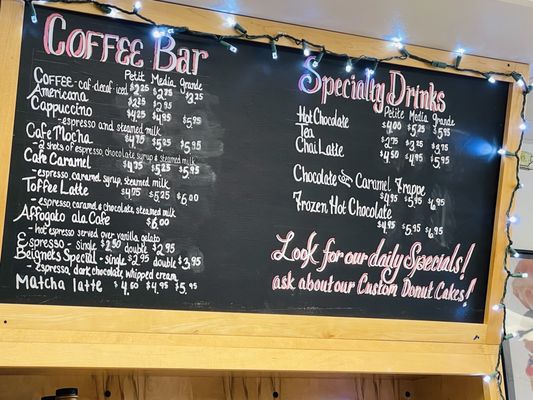 Coffee Bar
Petit Media Grande
COFFEE - caf-decaf-iced $2.25 $2.75 $3.25
Americana $2.25 $2.95
Cappuccino $4.25 $4.95 $5.95
-espresso and steamed milk
Cafe Mocha $4.75 $5.25 $5.95
-2 shots of espresso, chocolate syrup & steamed milk
Cafe Caramel $4.75 $5.25 $5.95
-espresso, caramel syrup, steamed milk
Toffee Latte $4.75 $5.25 $6.00
-espresso, caramel & chocolate, steamed milk
Affogato ala Cafe $6.00
- hot espresso served over vanilla gelato
Espresso - single $2.50 double $2.95
Beignets Special - single $2.95 double $3.95
-espresso, dark chocolate, whipped cream
Matcha latte $4.50 $4.95 $5.95
Specialty Drinks
Petite Media Grande
Hot Chocolate $4.00 $5.25 $5.95
Tea $2.75 $2.95
Chai Latte $4.50 $4.95 $5.95
Chocolate or Caramel Frappe
$4.95 $5.95 $6.95
Frozen Hot Chocolate
$4.95 $5.95 $6.95
Look for our daily Specials!
ask about our Custom Donut Cakes!